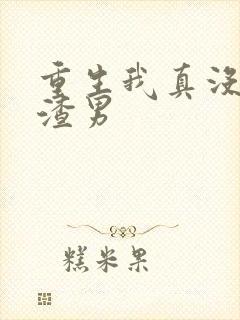 重生我真没
渣男
糕米果